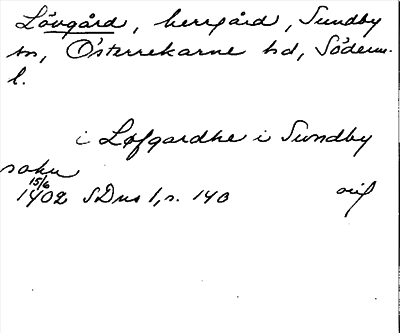 Lövgård, herrgård, Sundby
sn, Österrekarne hd, Söderm.
l.
i Lofgardhe i Sundby
sokn
15/6
1402 SDns 1, s. 140
orig